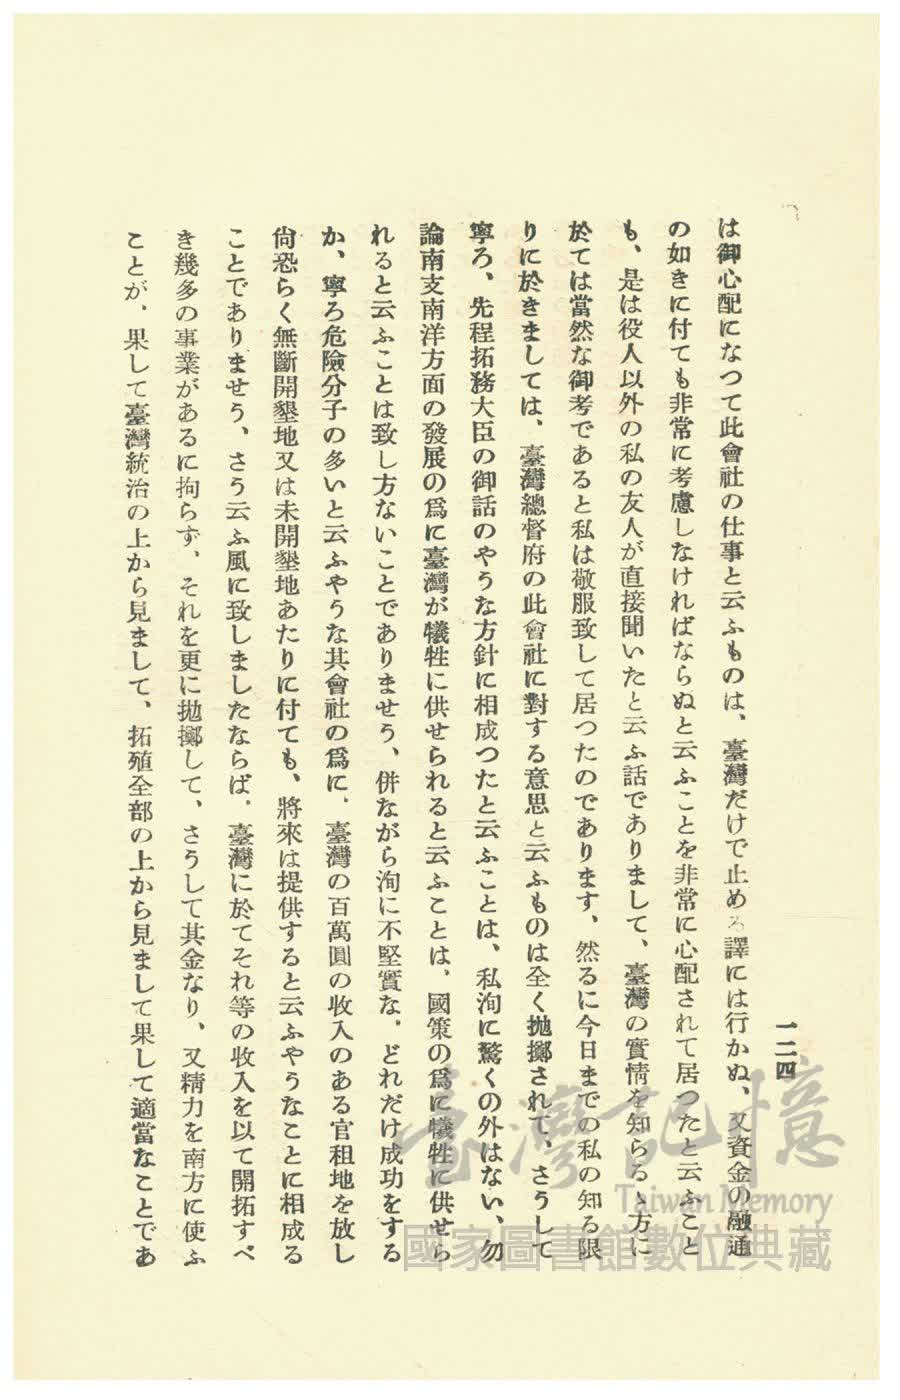 一二四
は御心配になつて此會社の仕事と云ふものは、臺灣だけで止めろ譯には行かぬ、又資金の融通
の如きに付ても非常に考慮しなければならぬと云ふことを非常に心配されて居つたと云ふこと
も、是は役人以外の私の友人が直接聞いたと云ふ話でありまして、臺灣の實情を知らるゝ方に
於ては當然な御考であると私は敬服致して居つたのであります、然るに今日までの私の知る限
りに於きましては、臺灣總督府の此會社に對する意思と云ふものは全く抛擲されて、さうして
寧ろ、先程拓務大臣の御話のやうな方針に相成つたと云ふことは、私洵に驚くの外はない、勿
論南支南洋方面の發展の爲に臺灣が犧牲に供せられると云ふことは、國策の爲に犧牲に供せら
れると云ふことは致し方ないことでありませう、併ながら洵に不堅實な、どれだけ成功をする
か、寧ろ危險分子の多いと云ふやうな其會社の爲に、臺灣の百萬圓の收入のある官租地を放し
尙恐らく無斷開墾地又は未開墾地あたりに付ても、將來は提供すると云ふやうなことに相成る
ことでありませう、さう云ふ風に致しましたならば、臺灣に於てそれ等の收入を以て開拓すべ
き幾多の事業があるに拘らず、それを更に抛擲して、さうして其金なり、又精力を南方に使ふ
ことが、果して臺灣統治の上から見まして、拓殖全部の上から見まして果して適當なことであ
臺灣記憶
Taiwan Memory
國家圖書館數位典藏